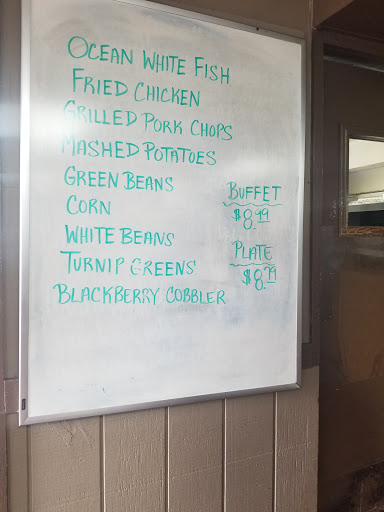 OCEAN WHITE FISH
FRIED CHICKEN
GRILLED PORK CHOPS
MASHED POTATOES
GREEN BEANS
CORN
WHITE BEANS
TURNIP GREENS
BLACKBERRY COBBLER
BUFFET
$8.99
PLATE
$8.79